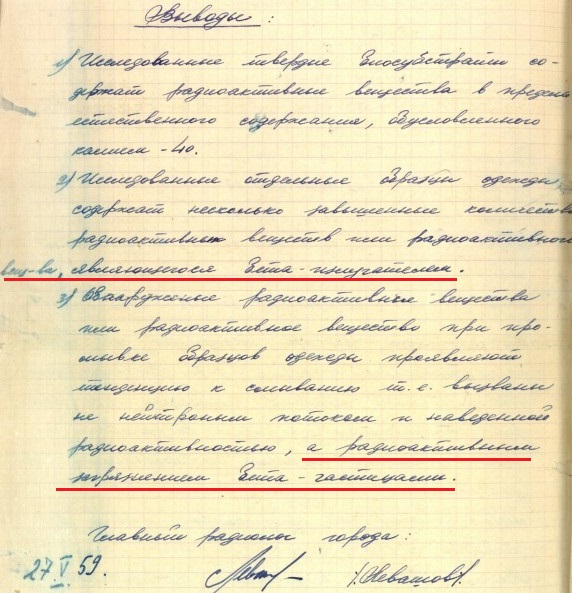 Выводы:
1) Исследованные твердые биосубстраты со-
держат радиоактивные вещества в пределах
естественного содержания, обусловленного
калием-40.
2) Исследованные отдельные образцы одежды
содержат несколько завышенные количества
радиоактивных веществ или радиоактивного
вещ-ва, являющегося бета-излучателем.
3) Обнаруженные радиоактивные вещества
или радиоактивное вещество при про-
мывке образцов одежды проявляют
тенденцию к смыванию т.е. вызваны
не нейтронным потоком и наведенной
радиоактивностью, а радиоактивным
загрязнением бета-частицами.
Главный радиолог города:
27.V.59. /Левашов/.